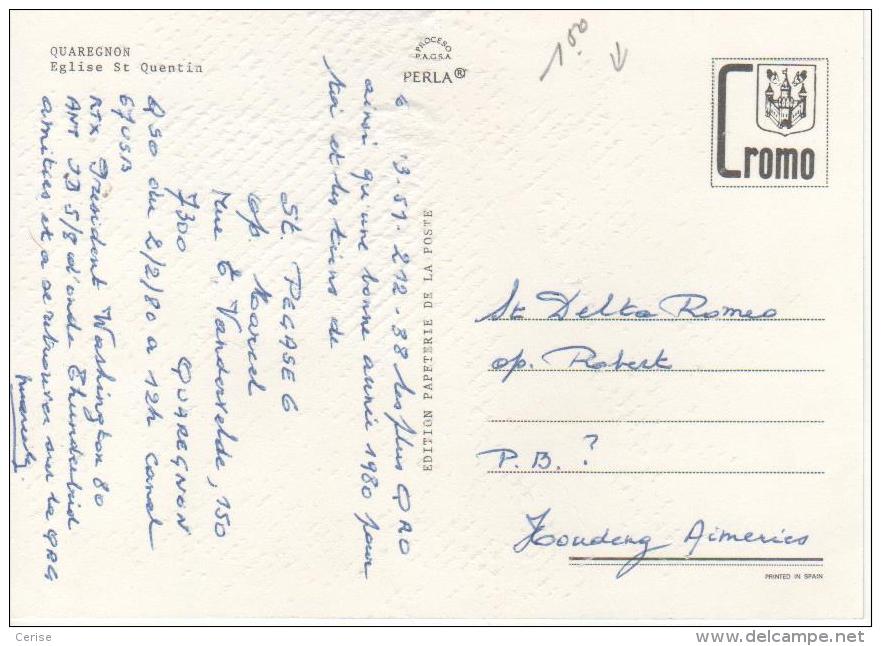 QUAREGNON
Eglise St Quentin
PROCESO
P.A.G.S.A.
PERLA®
1.50
Cromo
'3-51-212-38 les plus QRO
ainsi qu'une bonne année 1980 pour
toi et les tiens de
St. PEGASE 6
op. Marcel
Rue E. Vandervelde, 150
7300 QUAREGNON
QSO du 2/2/80 a 12h canal
67USB
RTX President Washington 80
ANT 5/8 d'onde Thunderbird
amities et a se retrouver sur la QRG
Marcel
EDITION PAPETERIE DE LA POSTE
St Delta Romeo
op. Robert
P.B. ?
Houdeng Aimeries
PRINTED IN SPAIN
Cerise
www.delcampe.net